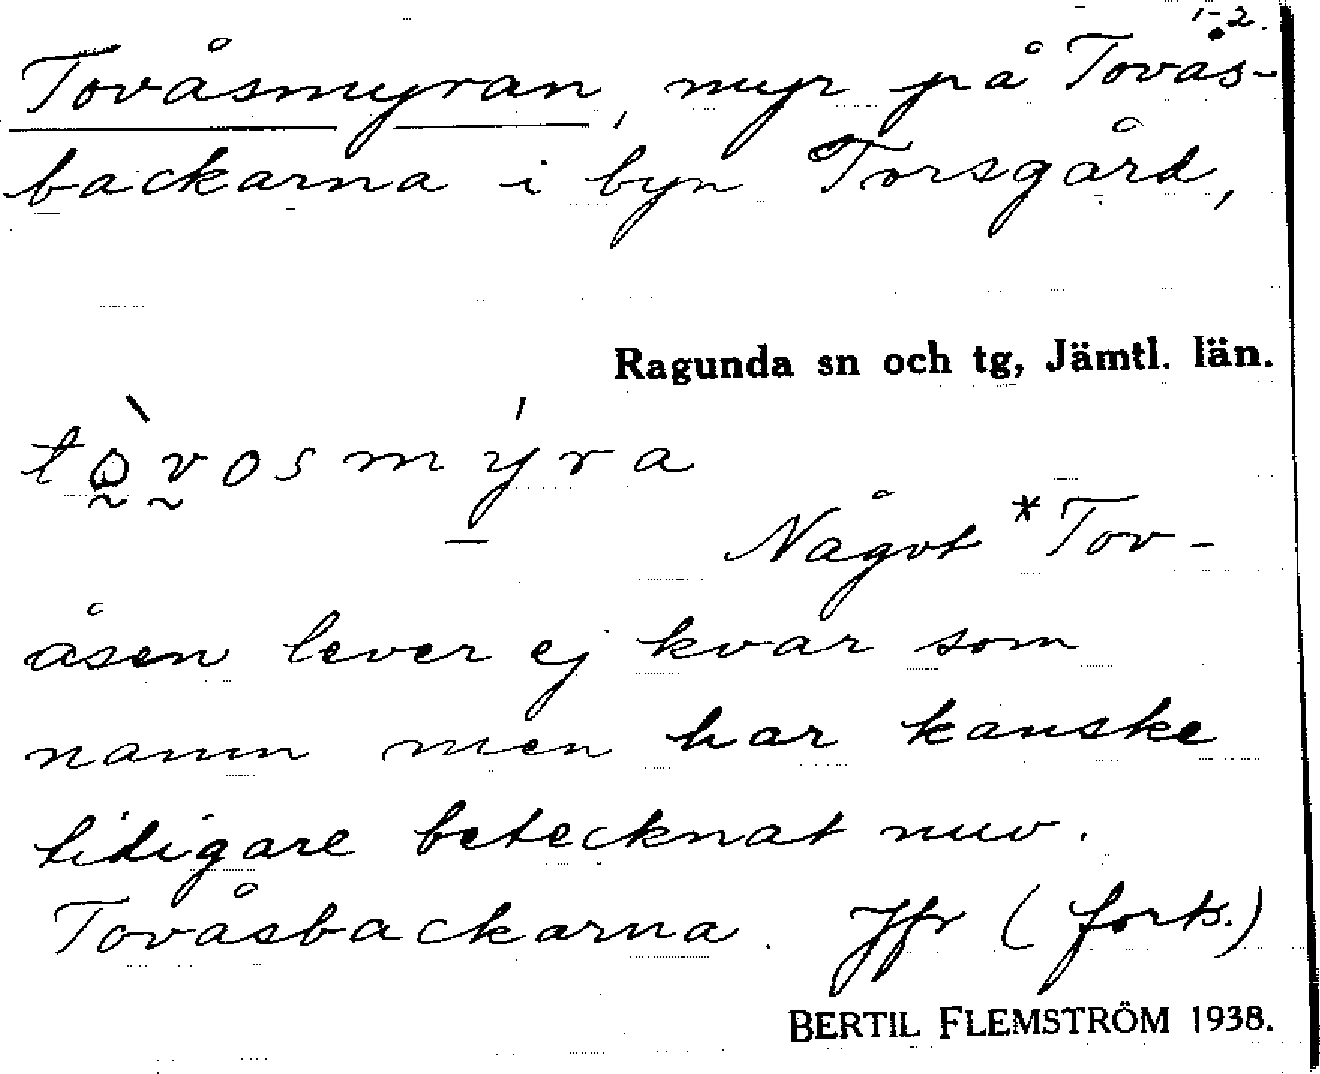 1-2.
Tovåsmyran, myr på Tovås-
backarna i byn Torsgård,
Ragunda sn och tg, Jämtl. län.
tò̰v̰osmý̱ra
Något *Tov-
åsen lever ej kvar som
namn men har kanske
tidigare betecknat nuv.
Tovåsbackarna. Jfr (forts.)
BERTIL FLEMSTRÖM 1938.